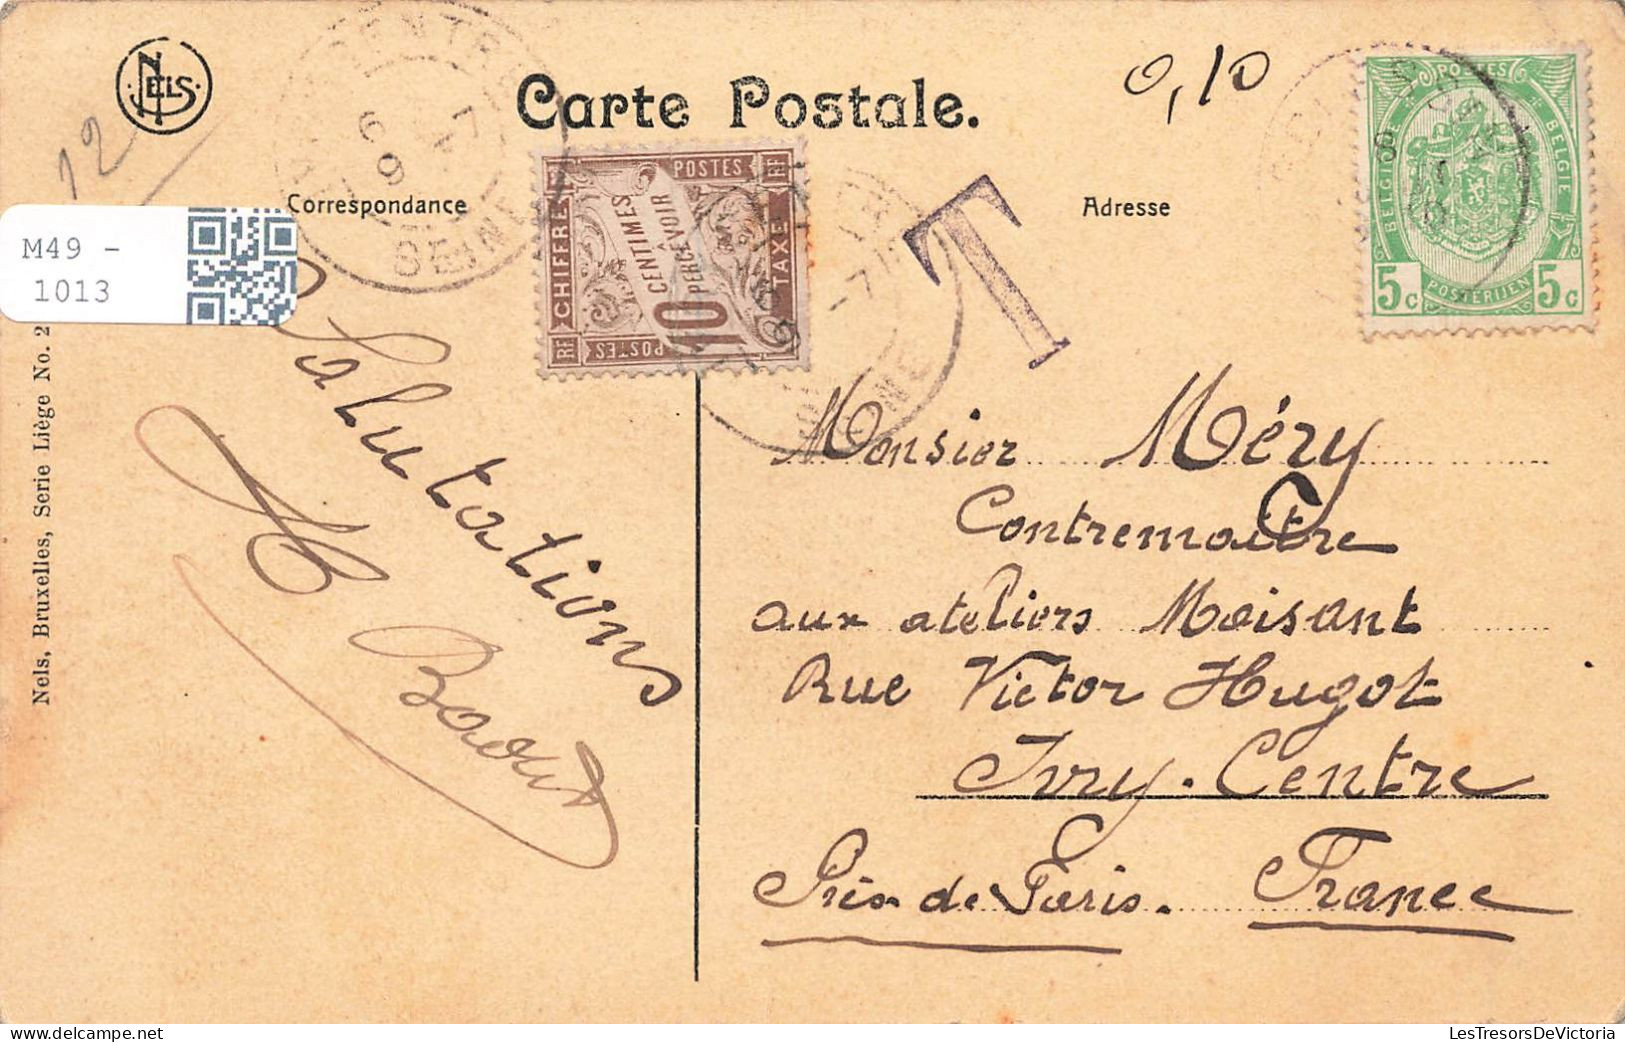 NELS
Carte Postale.
0,10
12
Correspondance
Adresse
M49 -
1013
POSTES
RF
CHIFFRE
TAXE
10
CENTIMES
À
PERCEVOIR
POSTES
RF
T
POSTES
BELGIE
BELGIQUE
5c
POSTERIJEN
5c
SEINE
Nels, Bruxelles, Serie Liège No. 2
Salutations
Monsier Méry
Contremaître
aux ateliers Moisant
Rue Victor Hugot
Ivry-Centre
Près de Paris. France
LesTresorsDeVictoria